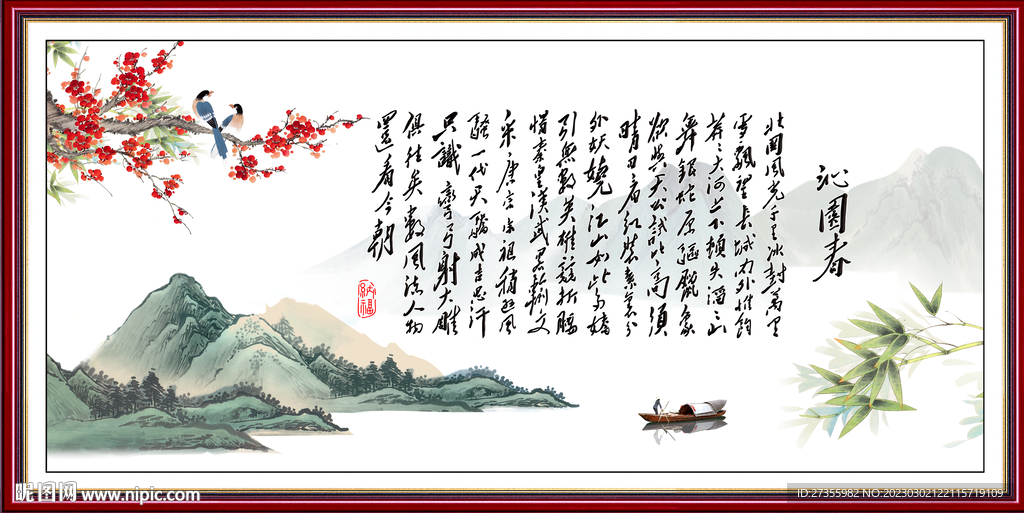 沁園春
北國風光千里冰封萬里
雪飄望長城内外惟餘
莽〻大河上下頓失滔〻山
舞銀蛇原驅臘象
欲與天公試比高須
晴日看紅裝素裹分
外妖嬈江山如此多嬌
引無數英雄競折腰
惜秦皇漢武略輸文
采唐宗宋祖稍遜風
騷一代天驕成吉思汗
只識彎弓射大雕
俱往矣數風流人物
還看今朝
納福
昵图网 www.nipic.com
ID:27355982 NO:20230302122115719109